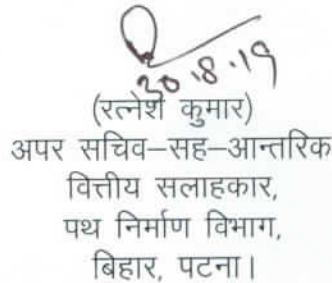 30.8.19
(रत्नेश कुमार)
अपर सचिव–सह–आन्तरिक
वित्तीय सलाहकार,
पथ निर्माण विभाग,
बिहार, पटना।